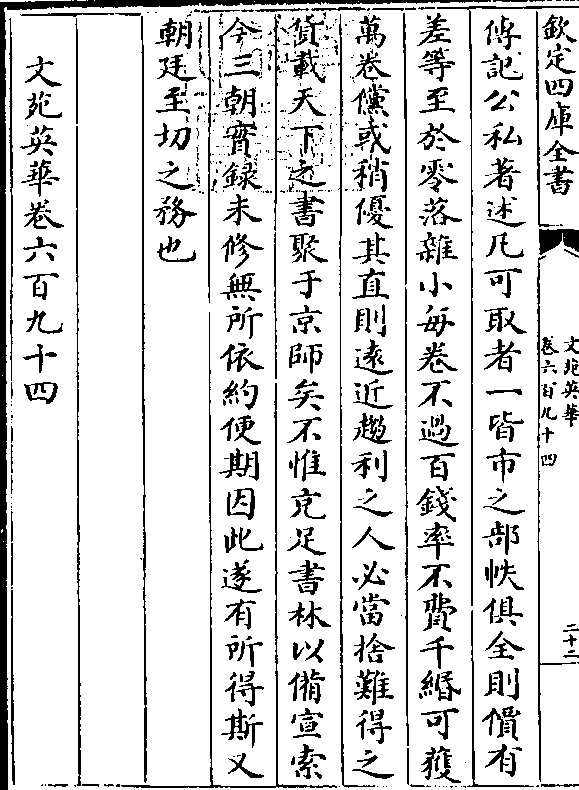 欽定四庫全書
文苑英華
卷六百九十四
二十二
傳記公私著述凡可取者一皆市之部帙俱全則價有
差等至於零落雜小每卷不過百錢率不費千緡可獲
萬卷儻或稍優其直則遠近趨利之人必當捨難得之
貨載天下之書聚于京師矣不惟充足書林以備宣索
今三朝實録未修無所依約便期因此遂有所得斯又
朝廷至切之務也
文苑英華卷六百九十四